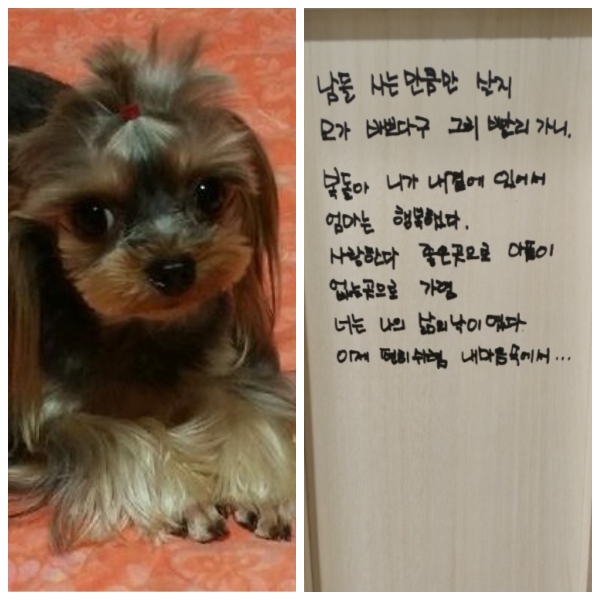 남들 사는만큼만 살지
모가 바쁘다구 그리 빨리 가니.
똘아 니가 내곁에 있어서
엄마는 행복했다.
사랑한다 좋은곳으로 아픔이
없는곳으로 가렴
너는 나의 삶의 낙이였다
이제 편히쉬렴 내마음속에서...